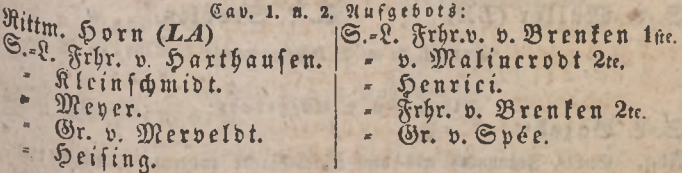 Cav. 1. u. 2. Aufgebots:
Rittm. Horn (LA)
S.=L. Frhr. v. Harthausen.
" Kleinschmidt.
" Meyer.
" Gr. v. Merveldt.
" Heising.
S.=L. Frhr. v. v. Brenken 1ste.
" v. Malincrodt 2te.
" Henrici.
" Frhr. v. Brenken 2te.
" Gr. v. Spée.